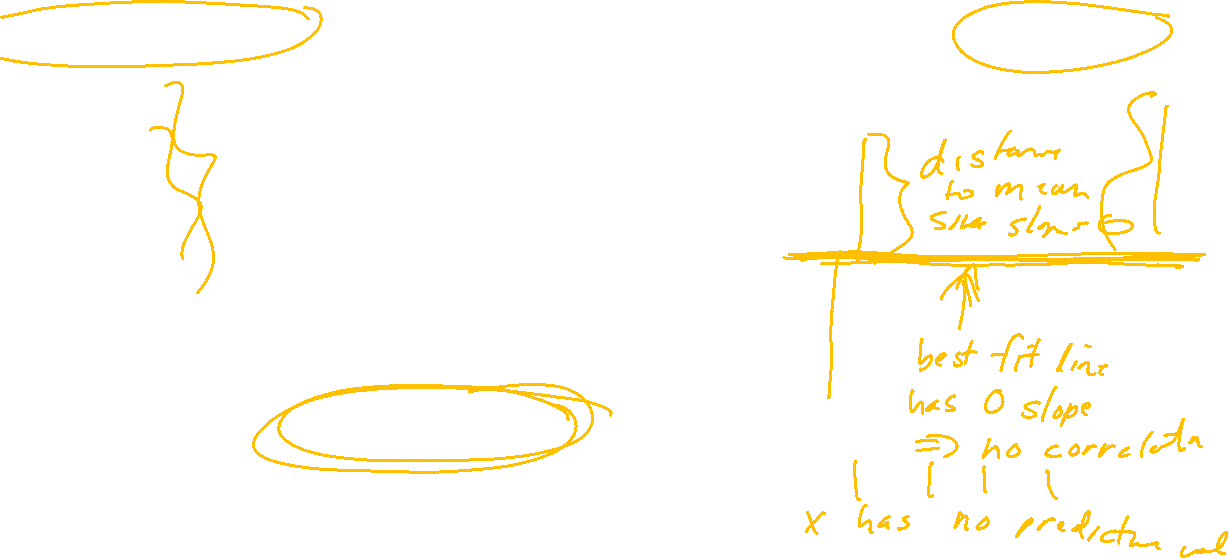 distance
to mean
since slope = 0
best fit line
has 0 slope
=> no correlatn
x has no predictive val